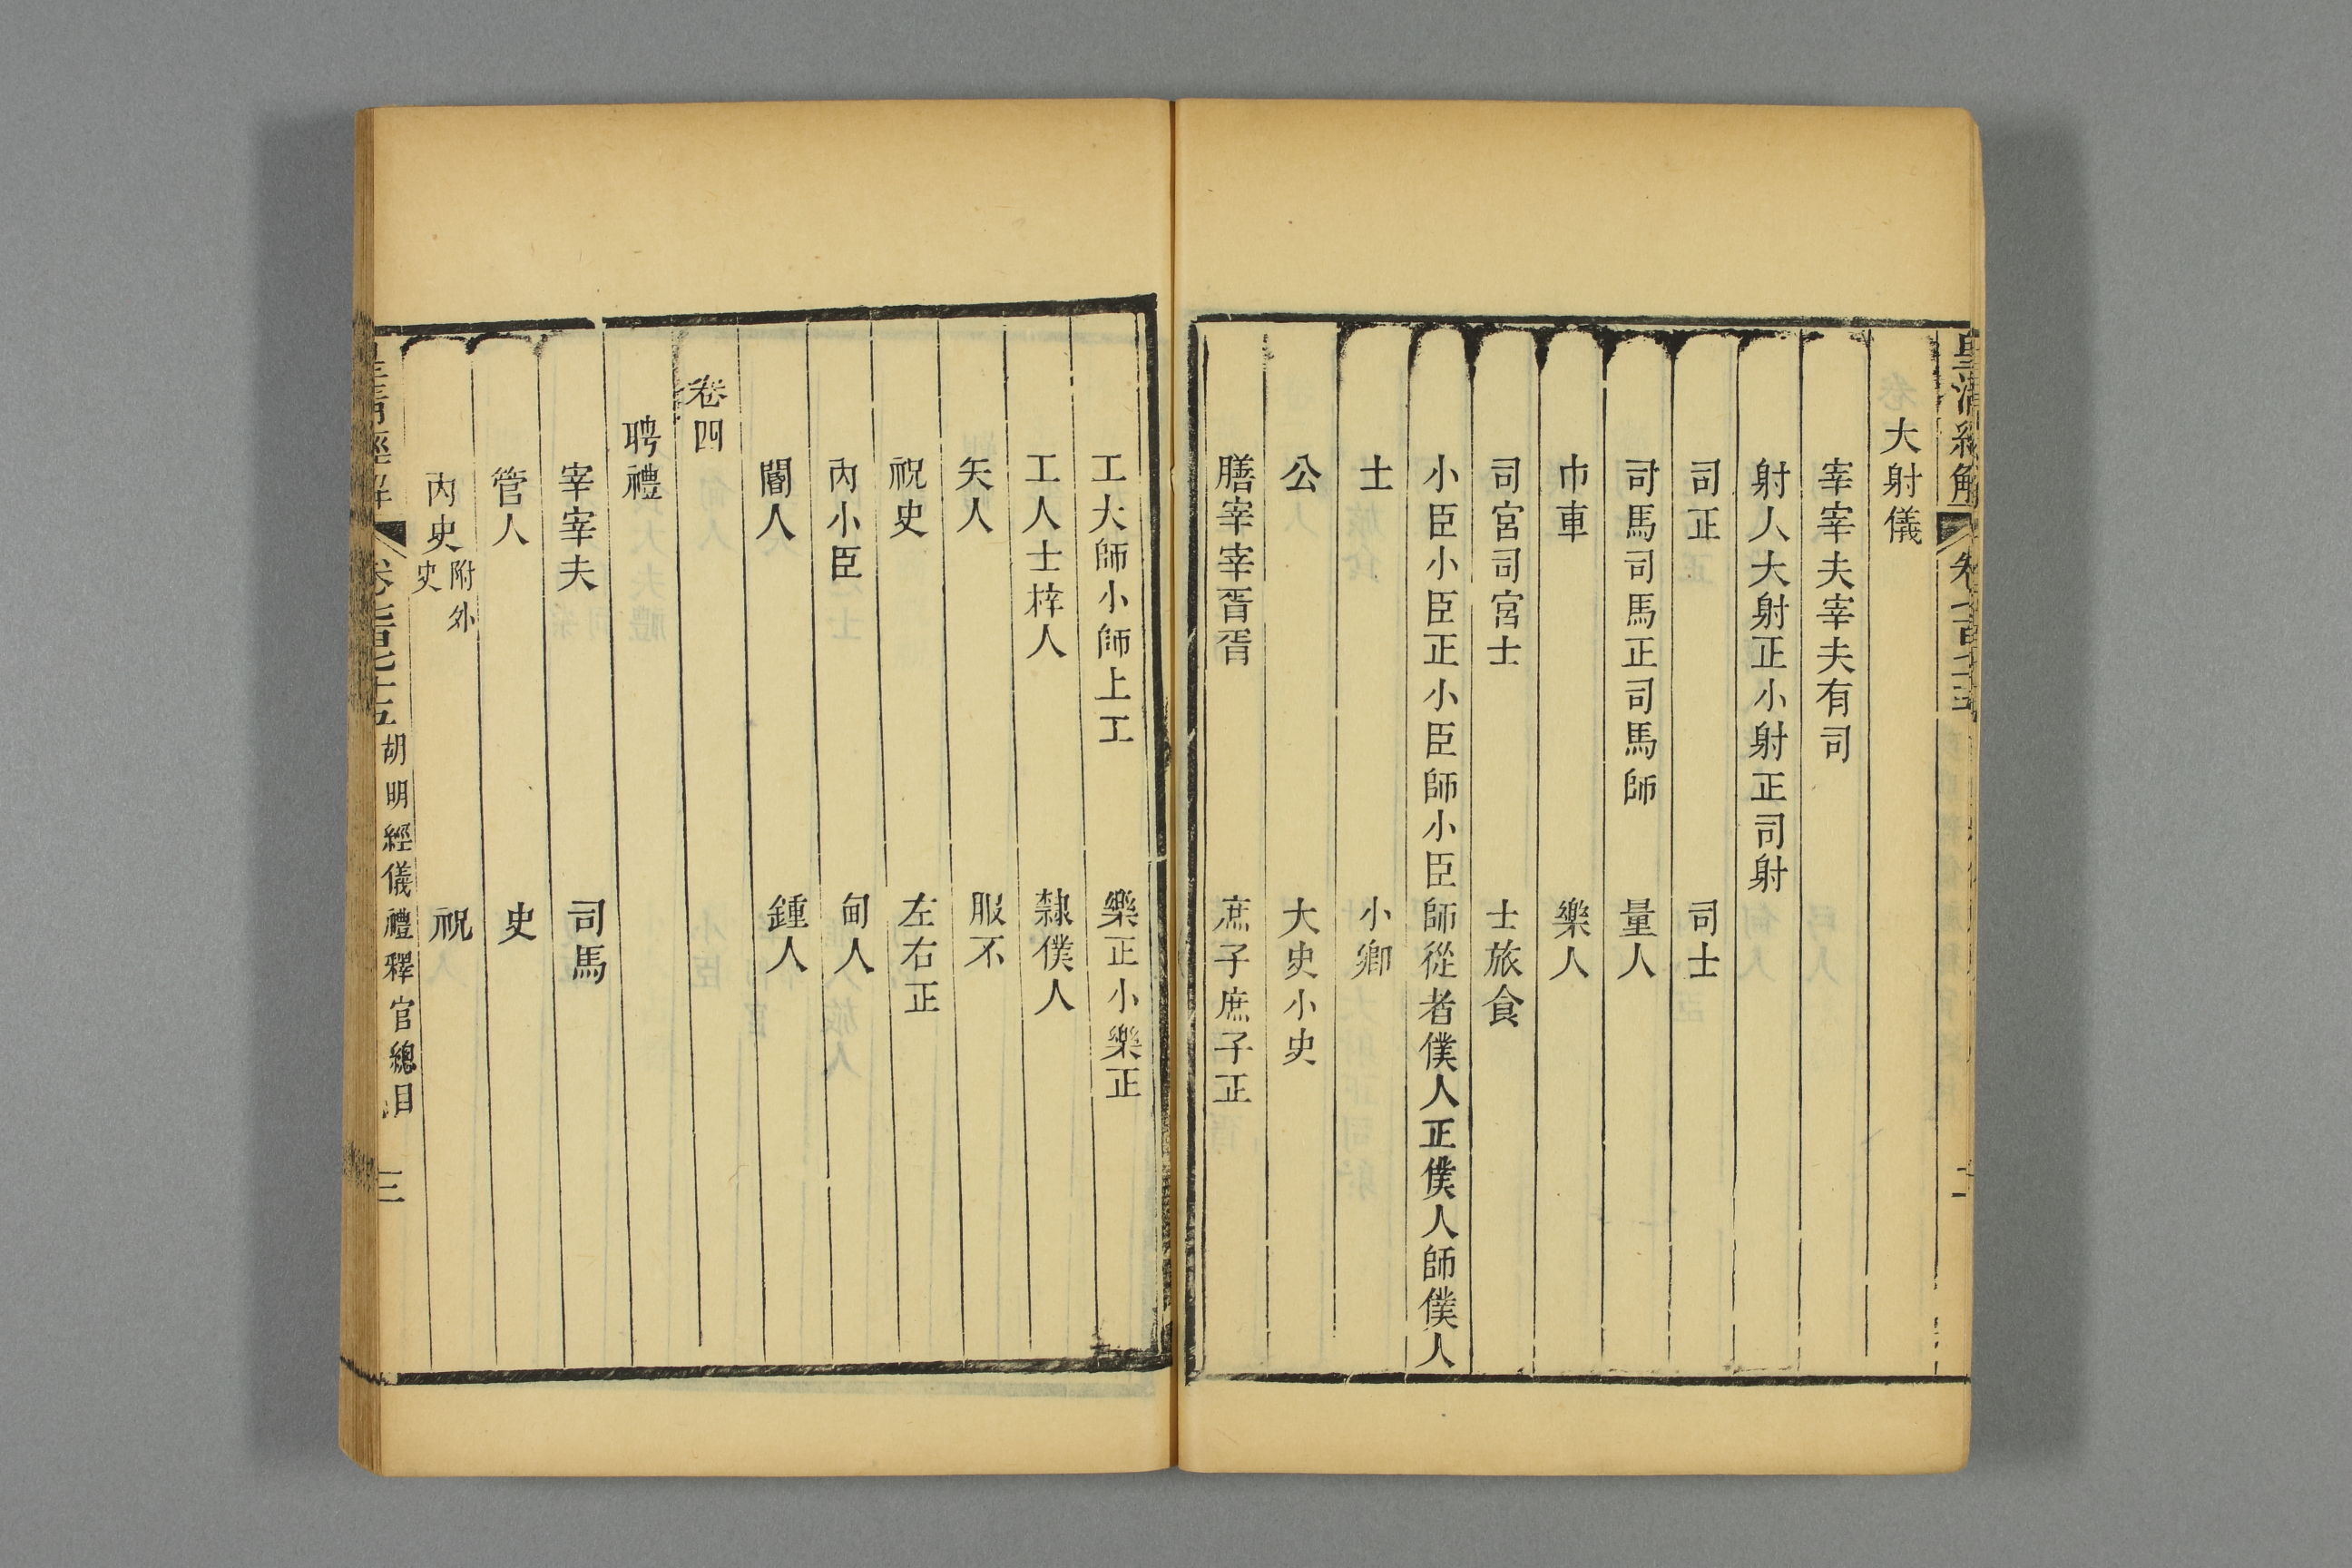 大射儀
宰宰夫宰夫有司
射人大射正小射正司射
司正　司士
司馬司馬正司馬師　量人
巾車　樂人
司宮司宮士　士旅食
小臣小臣正小臣師小臣師從者僕人正僕人師僕人
士　小卿
公　大史小史
膳宰宰胥胥　庶子庶子正
工大師小師上工　樂正小樂正
工人士梓人　隸僕人
矢人　服不
祝史　左右正
內小臣　甸人
閽人　鍾人
卷四
聘禮
宰宰夫　司馬
管人　史
內史附外史　祝
胡明經儀禮釋官總目　三